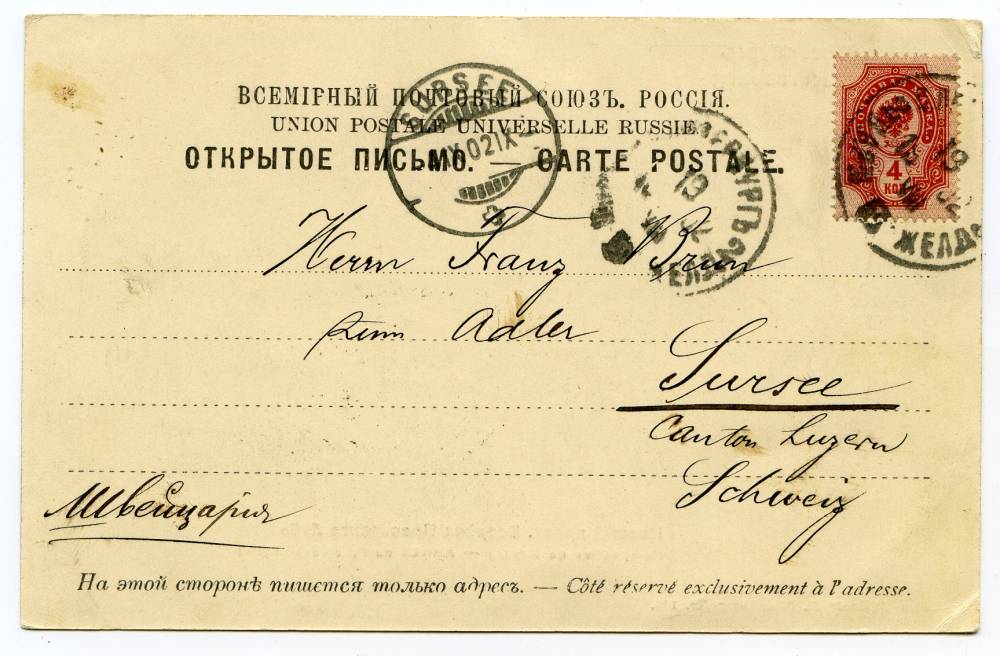 ВСЕМІРНЫЙ ПОЧТОВЫЙ СОЮЗЪ. РОССІЯ.
UNION POSTALE UNIVERSELLE RUSSIE.
ОТКРЫТОЕ ПИСЬМО. — CARTE POSTALE.
SURSEE
ПОЧТОВАЯ МАРКА
4
КОП
Herrn Franz Brun
Adler
Sursee
Canton Luzern
Schweiz
Швейцарія
На этой сторонѣ пишется только адресъ. — Côté réservé exclusivement à l'adresse.